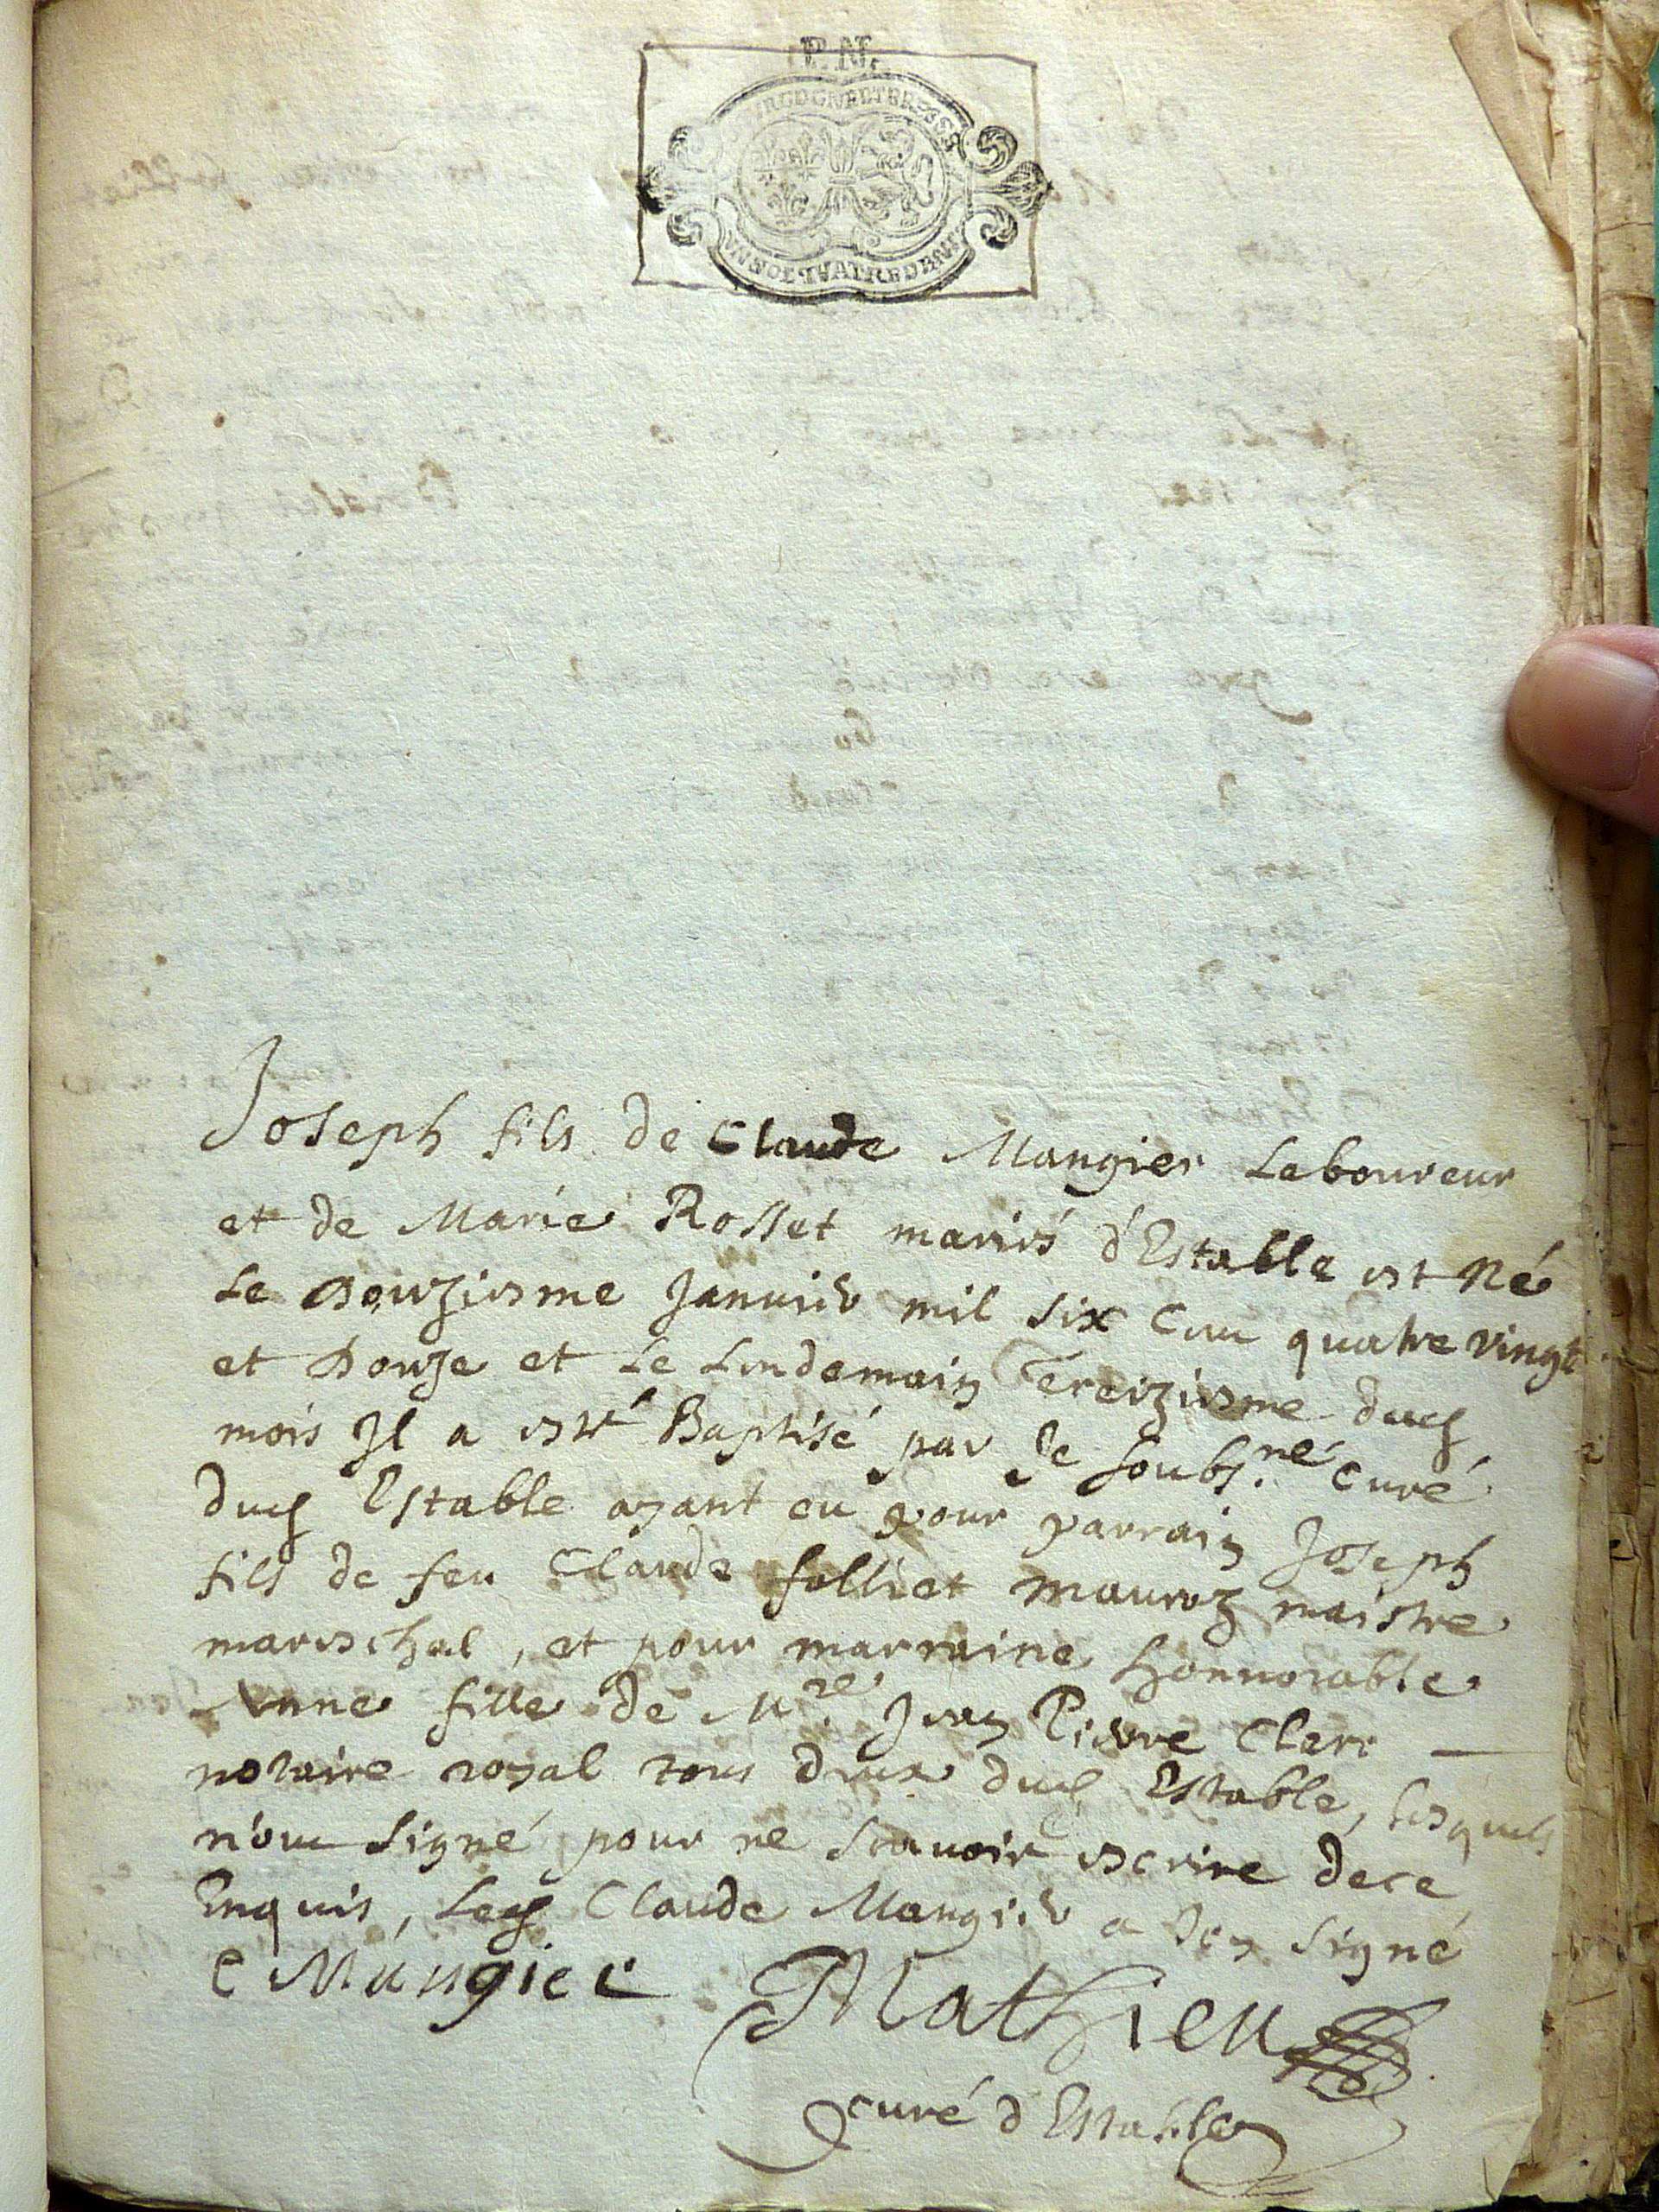 P.N.
BOURGOGNE ET BRESSE
UN SOL QUATRE DENIERS
Joseph fils de Claude Mangier Laboureur
et de Marie Rosset mariés d'Estable est Né
Le Douziesme Janvier mil six cent quatre vingt
et Douze et le Lendemain Treiziesme dud
mois Il a esté Baptisé par Je soubs.né curé
dud Estable ayant eu pour parrain Joseph
fils de feu Claude folliet mauroz maistre
mareschal, et pour marraine honnorable
Anne fille de M.re Jean Pierre Clerc —
notaire royal tous deux dud Estable, lesquels
n'ont signé pour ne scavoir escrire de ce
Enquis, Led Claude Mangier a signé
C Mangier Mathieu
curé d'Estable